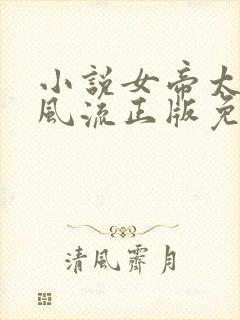 小説女帝太
風流正版免
清風霽月